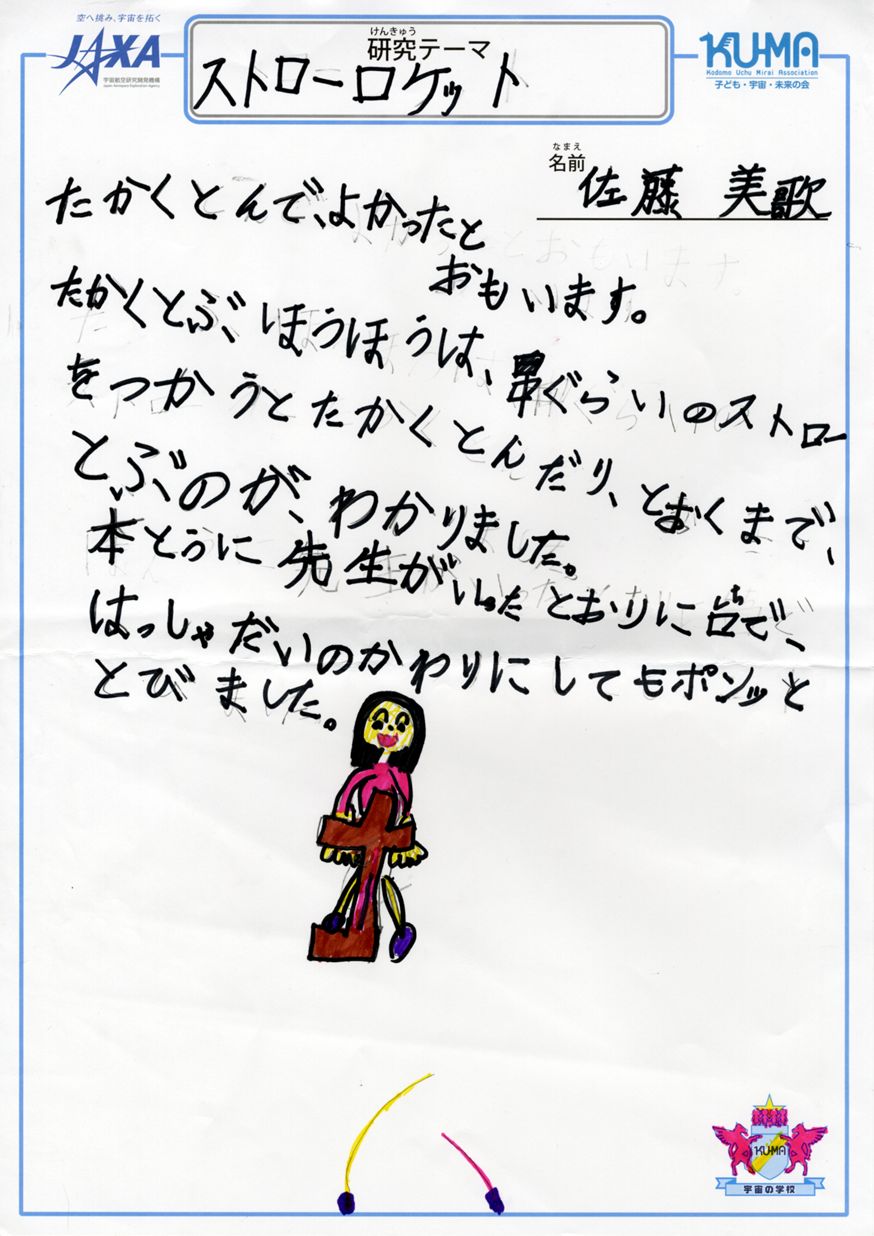 空へ挑み、宇宙を拓く
JAXA
宇宙航空研究開発機構
Japan Aerospace Exploration Agency
けんきゅう
研究テーマ
ストローロケット
KU-MA
Kodomo Uchu Mirai Association
子ども・宇宙・未来の会
なまえ
名前
佐藤 美歌
たかくとんで、よかったと
おもいます。
たかくとぶ、ほうほうは、ぐらいのストロー
をつかうとたかくとんだり、とおくまで、
とぶのが、わかりました。
本とうに先生がいったとおりに台で、
はっしゃだいのかわりにしてもポンッと
とびました。
KU-MA
宇宙の学校